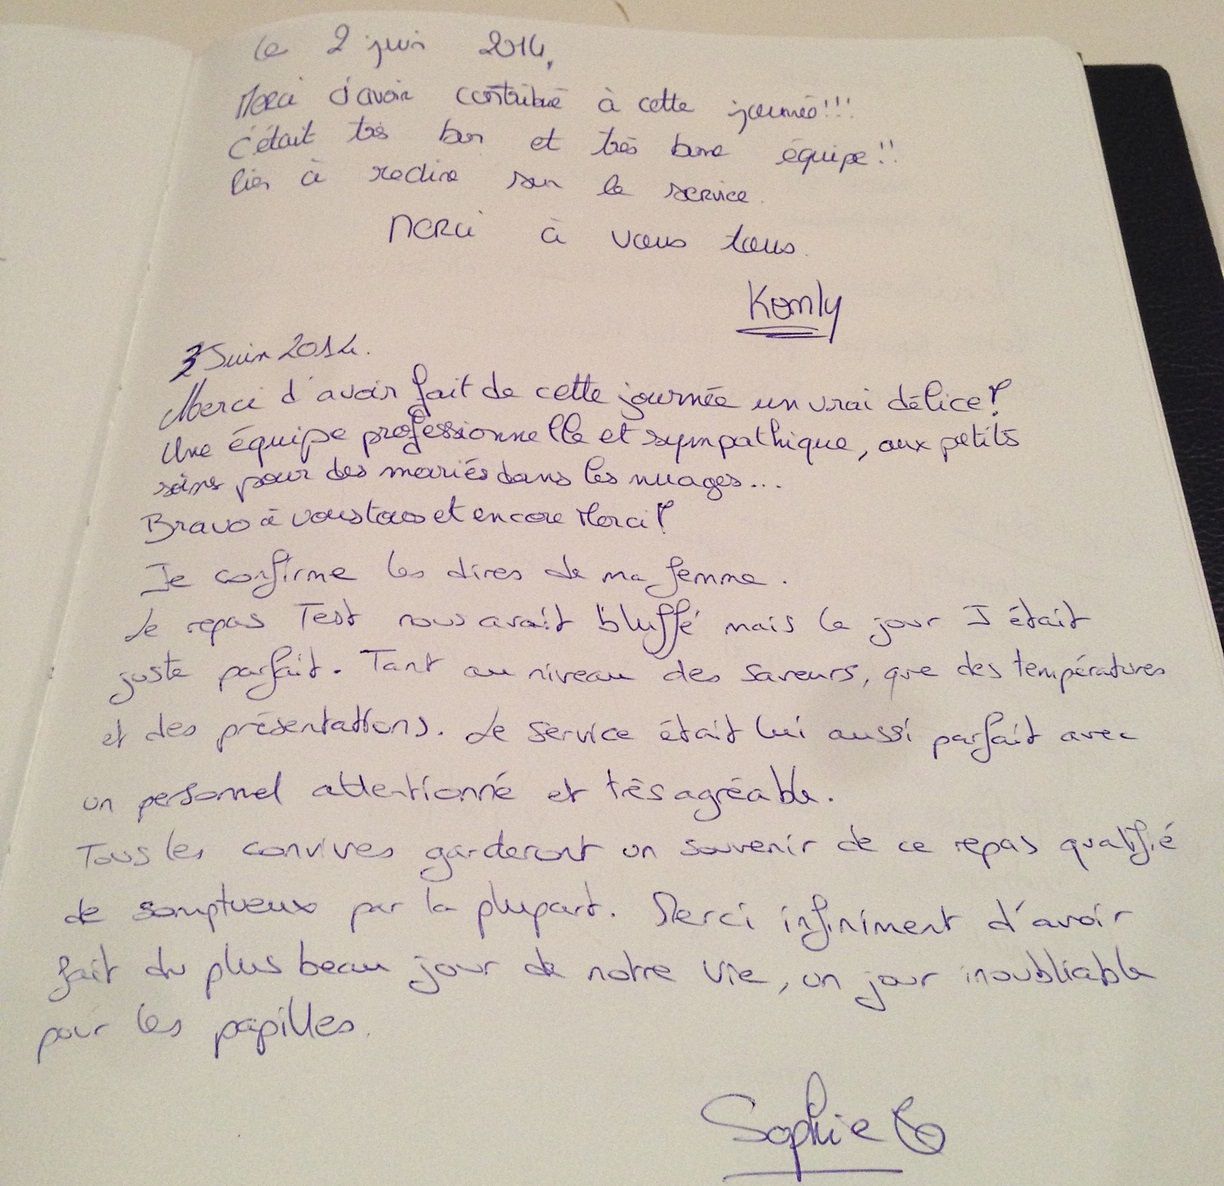 le 2 juin 2014,
Merci d'avoir contribué à cette journée!!!
c'était très bon et très bonne équipe!!
rien à redire sur le service.
Merci à vous tous.
Komly
3 Juin 2014.
Merci d'avoir fait de cette journée un vrai délice!
Une équipe professionnelle et sympathique, aux petits
soins pour des mariés dans les nuages...
Bravo à vous tous et encore Merci!
Je confirme les dires de ma femme.
Le repas Test nous avait bluffé mais le jour J était
juste parfait. Tant au niveau des saveurs, que des températures
et des présentations. Le service était lui aussi parfait avec
un personnel attentionné et très agréable.
Tous les convives garderont un souvenir de ce repas qualifié
de somptueux par la plupart. Merci infiniment d'avoir
fait du plus beau jour de notre vie, un jour inoubliable
pour les papilles.
Sophie